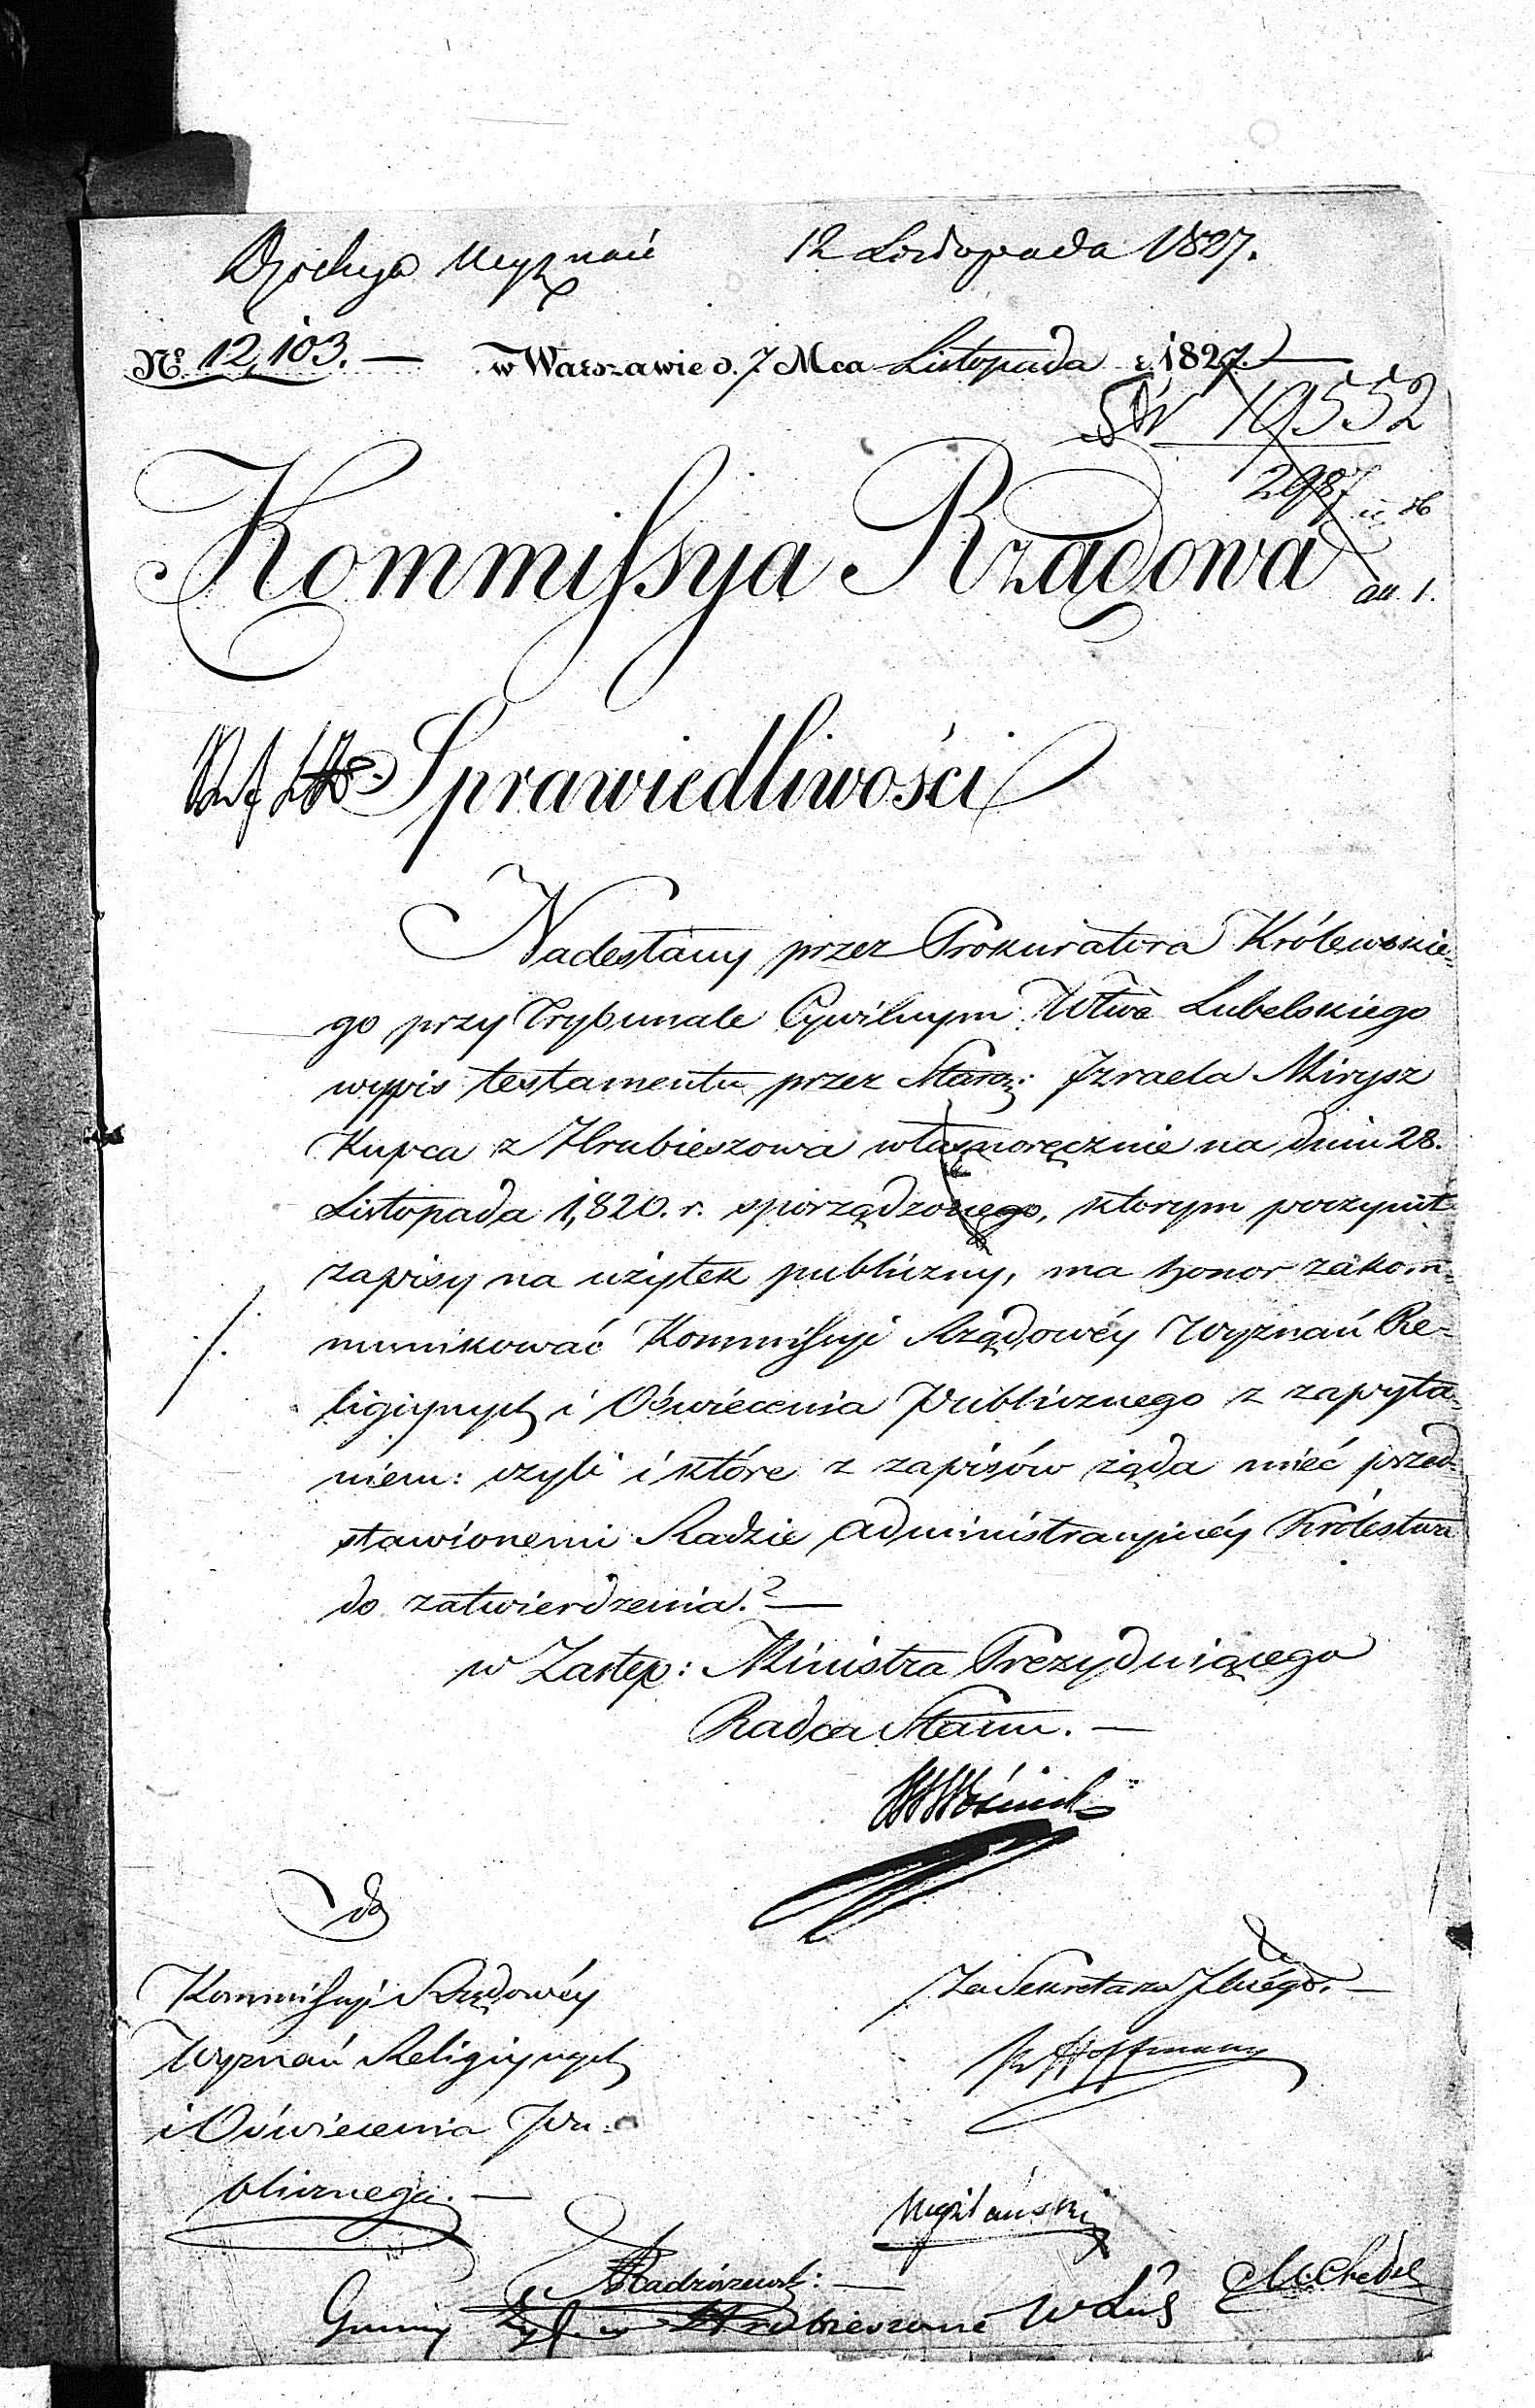 Wyznań 12 Listopada 1827.
No. 12,103. — w Warszawie d. 7 Mca Listopada r. 1827.
19552
2987
Kommissya Rządowa
Sprawiedliwości
Nadesłany przez Prokuratora Królewskie=
go przy Trybunale Cywilnym Wtwa Lubelskiego
wypis testamentu przez Staroz: Izraela Mirysz
Kupca z Hrubieszowa własnoręcznie na dniu 28.
Listopada 1,820. r. sporządzonego, ktorym poczynił
zapisy na użytek publiczny, ma honor zakom=
munikować Kommissyi Rządowéy Wyznań Re=
ligiynych i Oświecenia Publicznego z zapyta=
niem: czyli i które z zapisów żąda mieć przed=
stawionemi Radzie Administracyinéy Królestwa
do zatwierdzenia.? —
w Zastęp: Ministra Prezyduiącego
Radca Stanu. —
Woźnicki
do
Kommissyi Rządowéy
Wyznań Religiynych
i Oświecenia Pu=
blicznego. —
Za Sekretarza Jlnégo. —
Hoffmann
Radziszewski: —
Gminy w Hrubieszowie W Lub